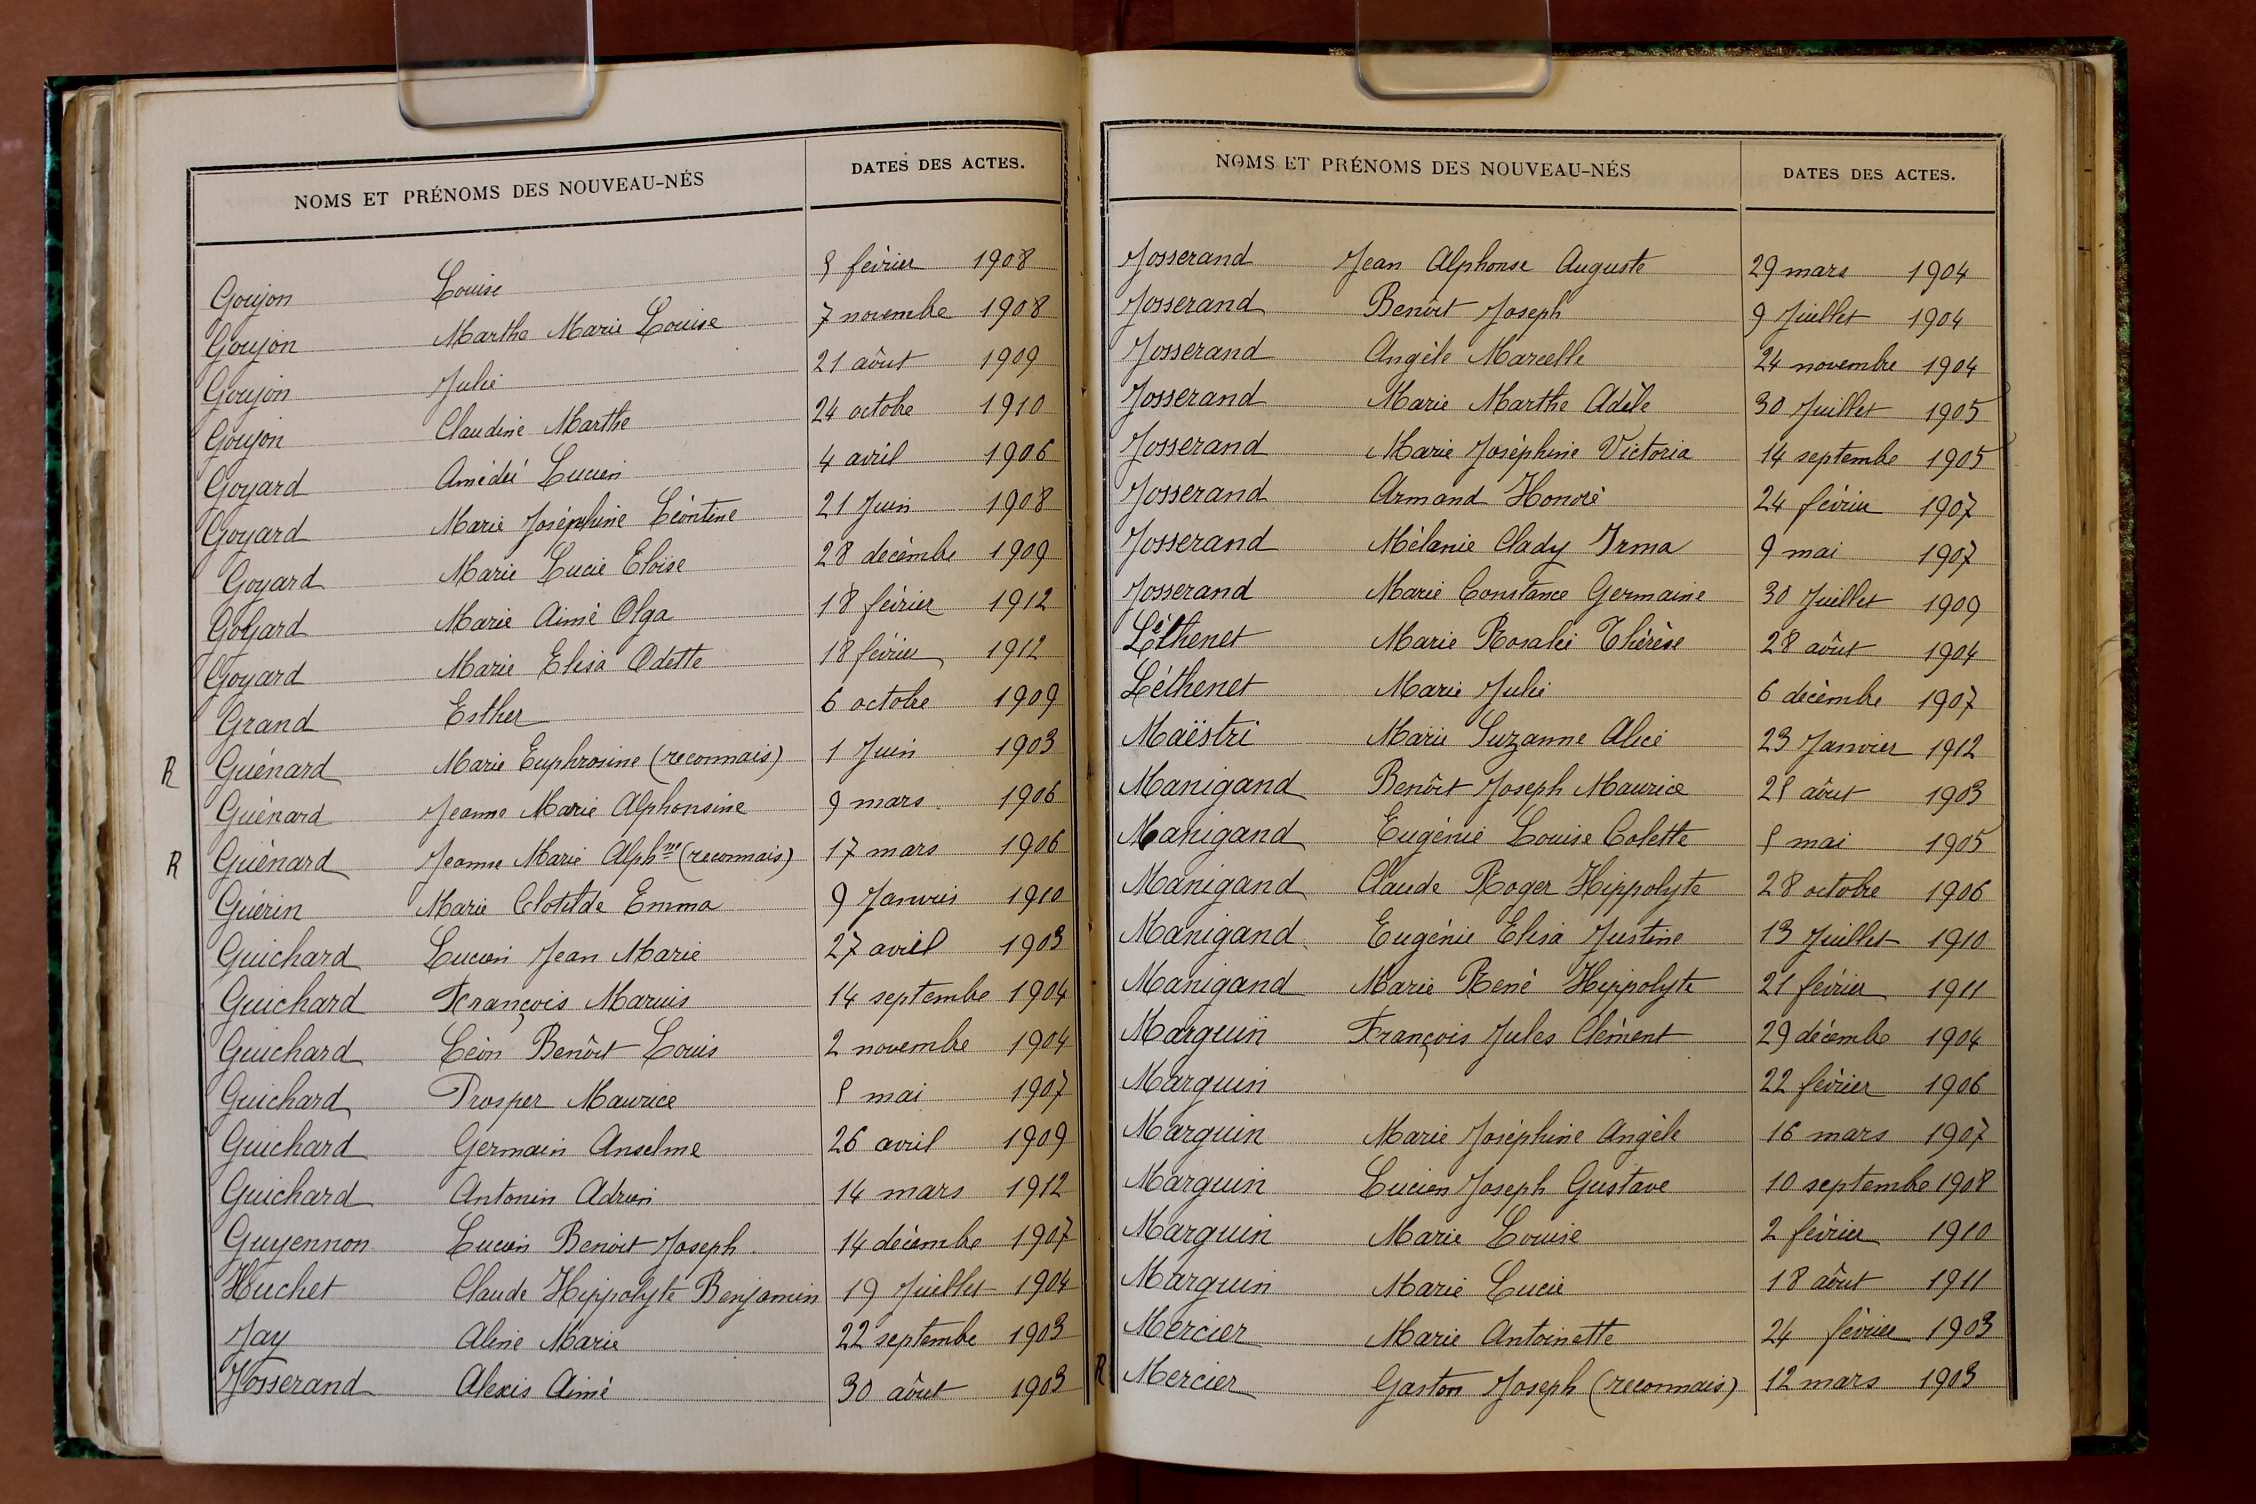 NOMS ET PRÉNOMS DES NOUVEAU-NÉS DATES DES ACTES.
Goujon Louise 5 février 1908
Goujon Marthe Marie Louise 7 novembre 1908
Goujon Julie 21 aôut 1909
Goujon Claudine Marthe 24 octobre 1910
Goyard Amédée Lucien 4 avril 1906
Goyard Marie Joséphine Léontine 21 Juin 1908
Goyard Marie Lucie Eloïse 28 decémbre 1909
Goyard Marie Aimé Olga 18 février 1912
Goyard Marie Elisa Odette 18 février 1912
Grand Esther 6 octobre 1909
R Guénard Marie Euphrosine (reconnais) 1 Juin 1903
Guénard Jeanne Marie Alphonsine 9 mars 1906
R Guénard Jeanne Marie Alphne (reconnais) 17 mars 1906
Guérin Marie Clotilde Emma 9 Janvier 1910
Guichard Lucien Jean Marie 27 avril 1903
Guichard François Marius 14 septembre 1904
Guichard Léon Benôit Louis 2 novembre 1904
Guichard Prosper Maurice 5 mai 1907
Guichard Germain Anselme 26 avril 1909
Guichard Antonin Adrien 14 mars 1912
Guyennon Lucien Benoit Joseph 14 décembre 1907
Huchet Claude Hippolyte Benjamin 19 Juillet 1904
Jay Aline Marie 22 septembre 1903
Josserand Alexis Aimé 30 aôut 1903
NOMS ET PRÉNOMS DES NOUVEAU-NÉS DATES DES ACTES.
Josserand Jean Alphonse Auguste 29 mars 1904
Josserand Benôit Joseph 9 Juillet 1904
Josserand Angèle Marcelle 24 novembre 1904
Josserand Marie Marthe Adèle 30 Juillet 1905
Josserand Marie Joséphine Victoria 14 septembre 1905
Josserand Armand Honoré 24 février 1907
Josserand Mélanie Clady Irma 9 mai 1907
Josserand Marie Constance Germaine 30 Juillet 1909
Léthenet Marie Rosalie Thérèse 28 aôut 1904
Léthenet Marie Julie 6 decémbre 1907
Maëstri Marie Suzanne Alice 23 Janvier 1912
Manigand Benôit Joseph Maurice 25 aôut 1903
Manigand Eugénie Louise Colette 5 mai 1905
Manigand Claude Roger Hippolyte 28 octobre 1906
Manigand Eugénie Elisa Justine 13 Juillet 1910
Manigand Marie René Hippolyte 21 février 1911
Marguin François Jules Clément 29 décembre 1904
Marguin 22 février 1906
Marguin Marie Joséphine Angèle 16 mars 1907
Marguin Lucien Joseph Gustave 10 septembre 1908
Marguin Marie Louise 2 février 1910
Marguin Marie Lucie 18 aôut 1911
Mercier Marie Antoinette 24 février 1903
R Mercier Gaston Joseph (reconnais) 12 mars 1903